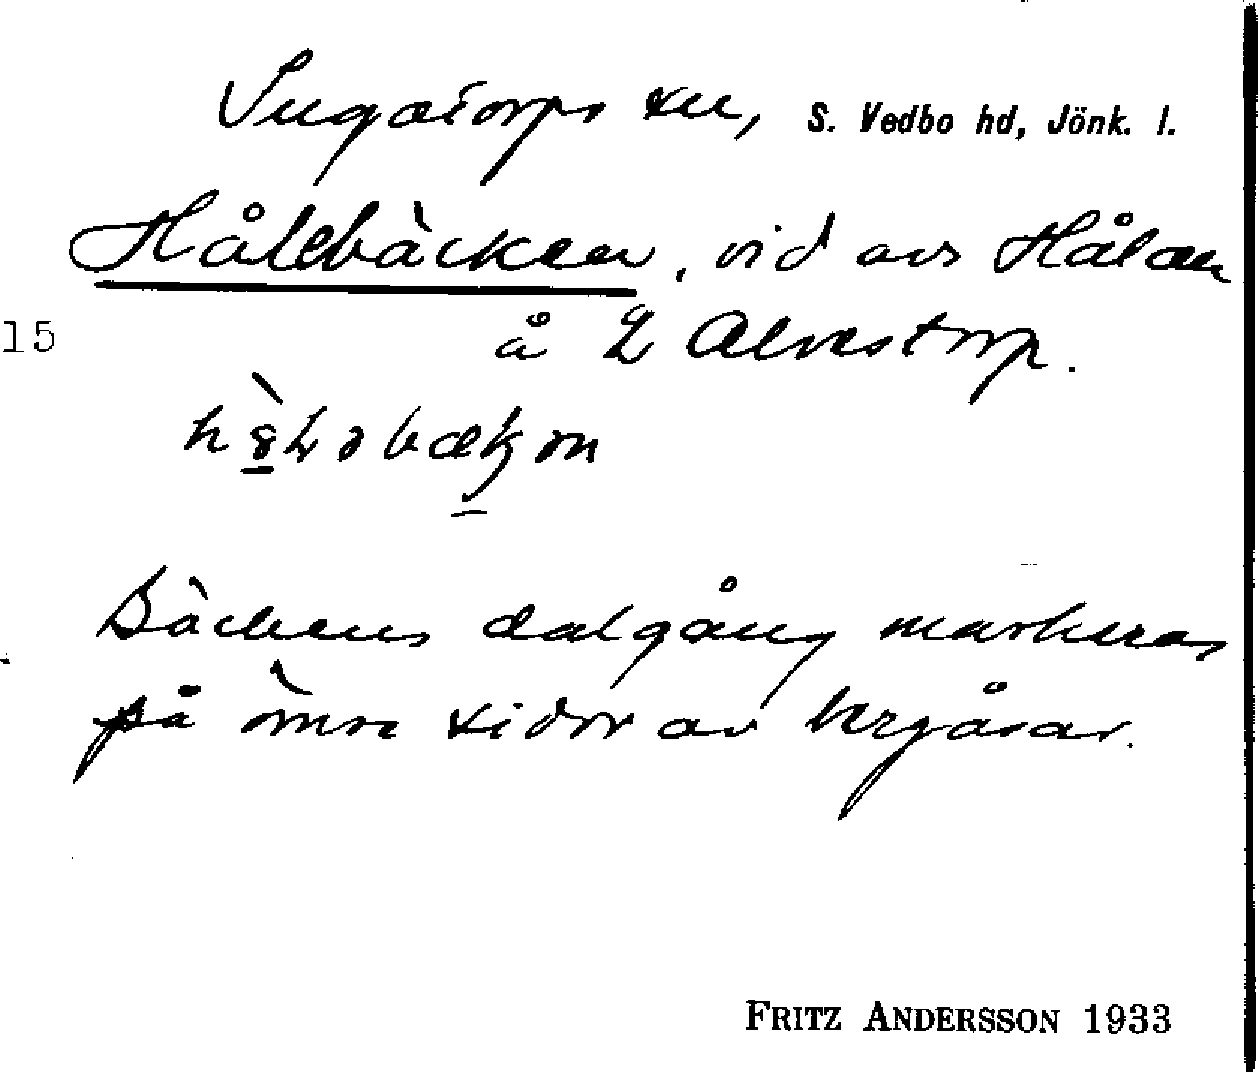 Ingatorps sn, S. Vedbo hd, Jönk. l.
Hålebäcken, vid avs Hålan
15 å L Alvestorp.
Bäckens dalgång markeras
på ömse sidor av bergåsar.
FRITZ ANDERSSON 1933